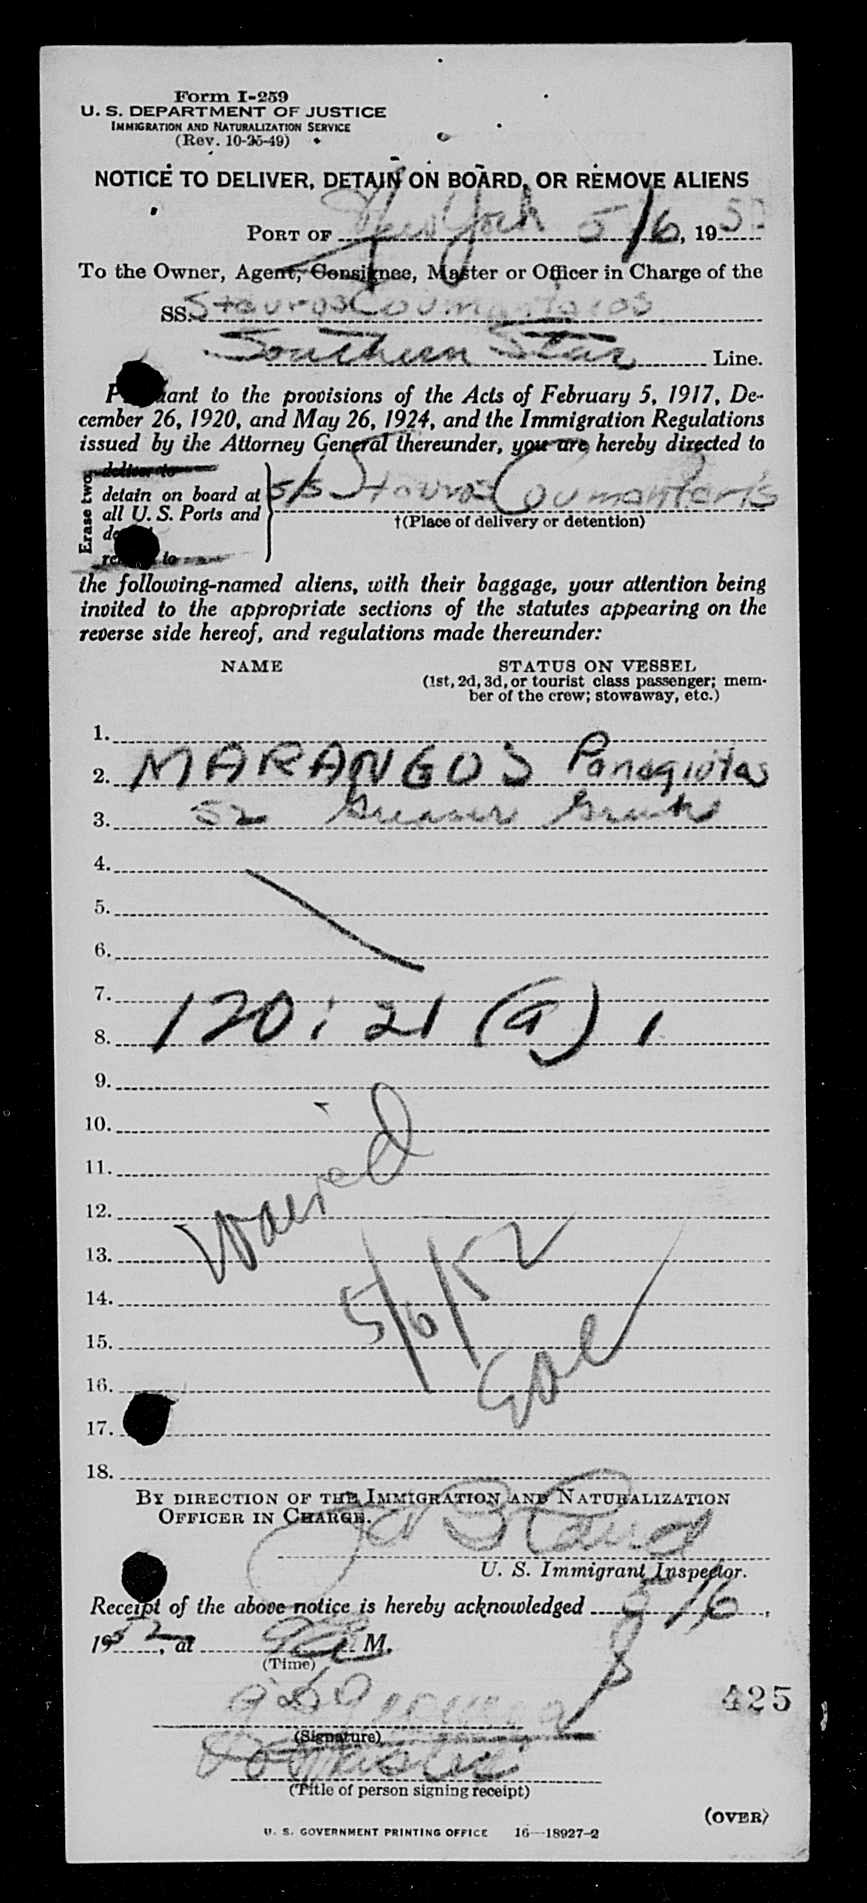 Form I-259
U. S. DEPARTMENT OF JUSTICE
IMMIGRATION AND NATURALIZATION SERVICE
(Rev. 10-25-49)
NOTICE TO DELIVER, DETAIN ON BOARD, OR REMOVE ALIENS
PORT OF New York 5/6, 1952
To the Owner, Agent, Consignee, Master or Officer in Charge of the
SS. Stavros Coumantaros
Southern Star Line.
Pursuant to the provisions of the Acts of February 5, 1917, De-
cember 26, 1920, and May 26, 1924, and the Immigration Regulations
issued by the Attorney General thereunder, you are hereby directed to
Erase two
deliver to
detain on board at
all U. S. Ports and
S/S Stavros Coumantaris
†(Place of delivery or detention)
the following-named aliens, with their baggage, your attention being
invited to the appropriate sections of the statutes appearing on the
reverse side hereof, and regulations made thereunder:
NAME STATUS ON VESSEL
(1st, 2d, 3d, or tourist class passenger; mem-
ber of the crew; stowaway, etc.)
1.
2. MARANGOS Panagiotas
3. 52 Greaser Greek
4.
5.
6.
7.
8. 120: 21 (a) 1
9.
10.
11.
12. Waived
13.
14. 5/6/52
15.
16.
17.
18.
BY DIRECTION OF THE IMMIGRATION AND NATURALIZATION
OFFICER IN CHARGE.
U. S. Immigrant Inspector.
Receipt of the above notice is hereby acknowledged 5/6,
1952, at M.
(Time)
425
(Signature)
(Title of person signing receipt)
(OVER)
U. S. GOVERNMENT PRINTING OFFICE 16—18927-2